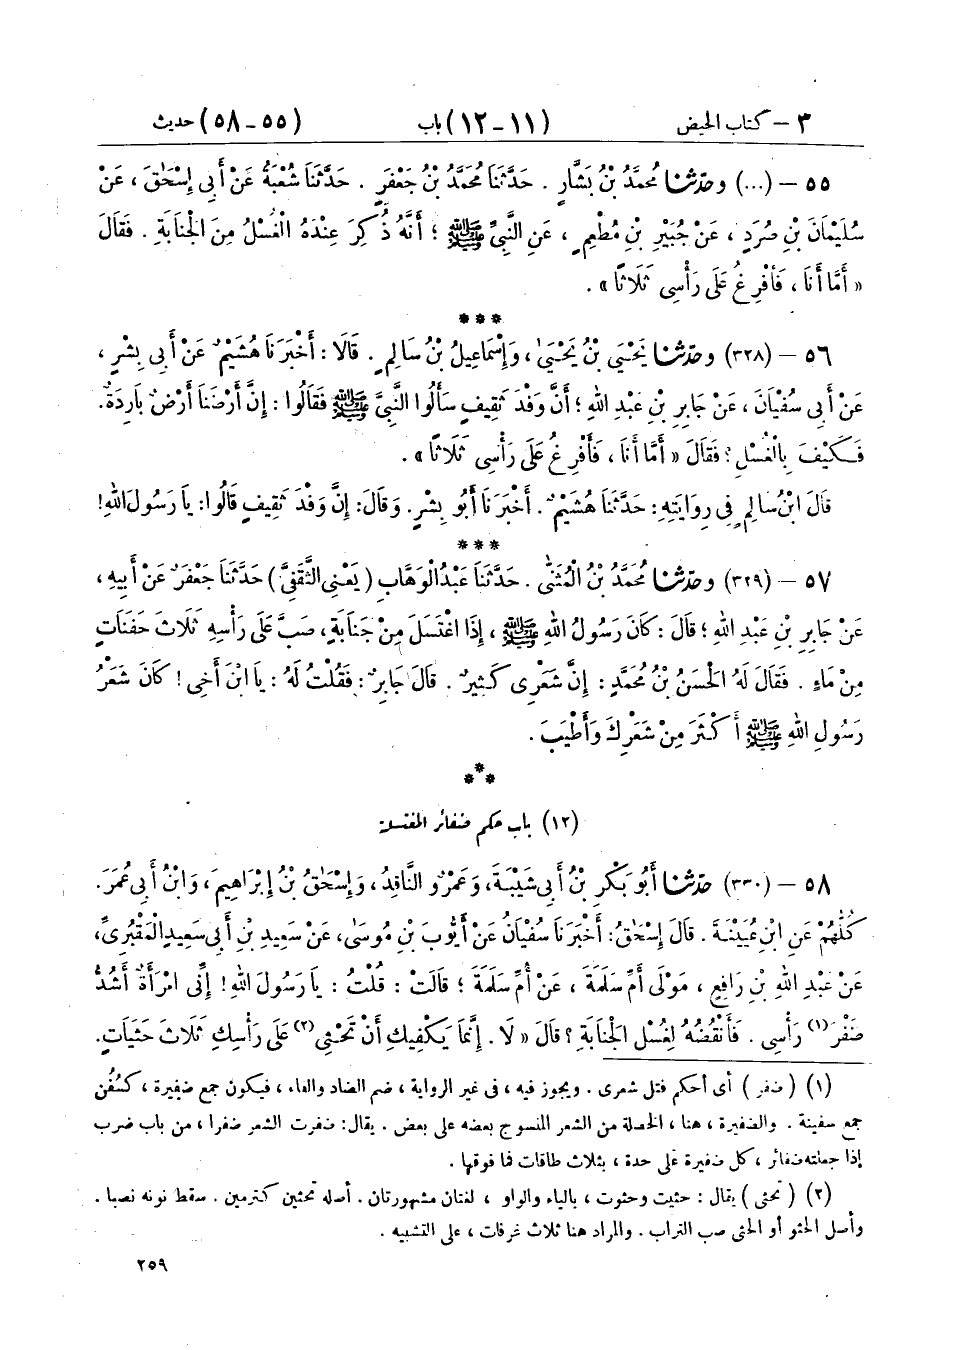 ٣ – كتاب الحيض (١١-١٢) باب (٥٥-٥٨) حديث
٥٥ – (...) وحَدَّثَنَا مُحَمَّدُ بْنُ بَشَّارٍ . حَدَّثَنَا مُحَمَّدُ بْنُ جَعْفَرٍ . حَدَّثَنَا شُعْبَةُ عَنْ أَبِي إِسْحَٰقَ ، عَنْ
سُلَيْمَانَ بْنِ صُرَدٍ ، عَنْ جُبَيْرِ بْنِ مُطْعِمٍ ، عَنِ النَّبِيِّ ﷺ ؛ أَنَّهُ ذُكِرَ عِنْدَهُ الْغُسْلُ مِنَ الْجَنَابَةِ . فَقَالَ
« أَمَّا أَنَا ، فَأُفْرِغُ عَلَى رَأْسِي ثَلَاثًا » .
***
٥٦ – (٣٢٨) وحَدَّثَنَا يَحْيَى بْنُ يَحْيَىٰ ، وَإِسْمَاعِيلُ بْنُ سَالِمٍ . قَالَا : أَخْبَرَنَا هُشَيْمٌ عَنْ أَبِي بِشْرٍ ،
عَنْ أَبِي سُفْيَانَ ، عَنْ جَابِرِ بْنِ عَبْدِ اللهِ ؛ أَنَّ وَفْدَ ثَقِيفٍ سَأَلُوا النَّبِيَّ ﷺ فَقَالُوا : إِنَّ أَرْضَنَا أَرْضٌ بَارِدَةٌ.
فَكَيْفَ بِالْغُسْلِ ؟ فَقَالَ « أَمَّا أَنَا ، فَأُفْرِغُ عَلَى رَأْسِي ثَلَاثًا » .
قَالَ ابْنُ سَالِمٍ فِي رِوَايَتِهِ : حَدَّثَنَا هُشَيْمٌ . أَخْبَرَنَا أَبُو بِشْرٍ . وَقَالَ : إِنَّ وَفْدَ ثَقِيفٍ قَالُوا : يَا رَسُولَ اللهِ!
***
٥٧ – (٣٢٩) وحَدَّثَنَا مُحَمَّدُ بْنُ الْمُثَنَّى . حَدَّثَنَا عَبْدُ الْوَهَّابِ ( يَعْنِي الثَّقَفِيَّ ) حَدَّثَنَا جَعْفَرٌ عَنْ أَبِيهِ ،
عَنْ جَابِرِ بْنِ عَبْدِ اللهِ ؛ قَالَ : كَانَ رَسُولُ اللهِ ﷺ ، إِذَا اغْتَسَلَ مِنْ جَنَابَةٍ ، صَبَّ عَلَى رَأْسِهِ ثَلَاثَ حَفَنَاتٍ
مِنْ مَاءٍ . فَقَالَ لَهُ الْحَسَنُ بْنُ مُحَمَّدٍ : إِنَّ شَعْرِي كَثِيرٌ . قَالَ جَابِرٌ : فَقُلْتُ لَهُ : يَا ابْنَ أَخِي ! كَانَ شَعْرُ
رَسُولِ اللهِ ﷺ أَكْثَرَ مِنْ شَعْرِكَ وَأَطْيَبَ .
***
(١٢) باب حكم ضفائر المغتسلة
٥٨ – (٣٣٠) حَدَّثَنَا أَبُو بَكْرِ بْنُ أَبِي شَيْبَةَ ، وَعَمْرٌو النَّاقِدُ ، وَإِسْحَٰقُ بْنُ إِبْرَاهِيمَ ، وَابْنُ أَبِي عُمَرَ .
كُلُّهُمْ عَنِ ابْنِ عُيَيْنَةَ . قَالَ إِسْحَٰقُ : أَخْبَرَنَا سُفْيَانُ عَنْ أَيُّوبَ بْنِ مُوسَىٰ ، عَنْ سَعِيدِ بْنِ أَبِي سَعِيدٍ الْمَقْبُرِيِّ ،
عَنْ عَبْدِ اللهِ بْنِ رَافِعٍ ، مَوْلَى أُمِّ سَلَمَةَ ، عَنْ أُمِّ سَلَمَةَ ؛ قَالَتْ : قُلْتُ : يَا رَسُولَ اللهِ ! إِنِّي امْرَأَةٌ أَشُدُّ
ضَفْرَ(١) رَأْسِي . فَأَنْقُضُهُ لِغُسْلِ الْجَنَابَةِ ؟ قَالَ « لَا . إِنَّمَا يَكْفِيكِ أَنْ تَحْثِي(٢) عَلَى رَأْسِكِ ثَلَاثَ حَثَيَاتٍ .
(١) ( ضفر ) أى أحكم فتل شعرى . ويجوز فيه ، فى غير الرواية ، ضم الضاد والفاء ، فيكون جمع ضفيرة ، كسُفُن
جمع سفينة . والضفيرة ، هنا ، الخصلة من الشعر المنسوج بعضه على بعض . يقال : ضفرت الشعر ضفرا ، من باب ضرب
إذا جعلته ضفائر ، كل ضفيرة على حدة ، بثلاث طاقات فما فوقها .
(٢) ( تحثى ) يقال : حثيت وحثوت ، بالياء والواو ، لغتان مشهورتان . أصله تحثين كترمين . سقط نونه نصبا .
وأصل الحثو أو الحثى صب التراب . والمراد هنا ثلاث غرفات ، على التشبيه .
٢٥٩